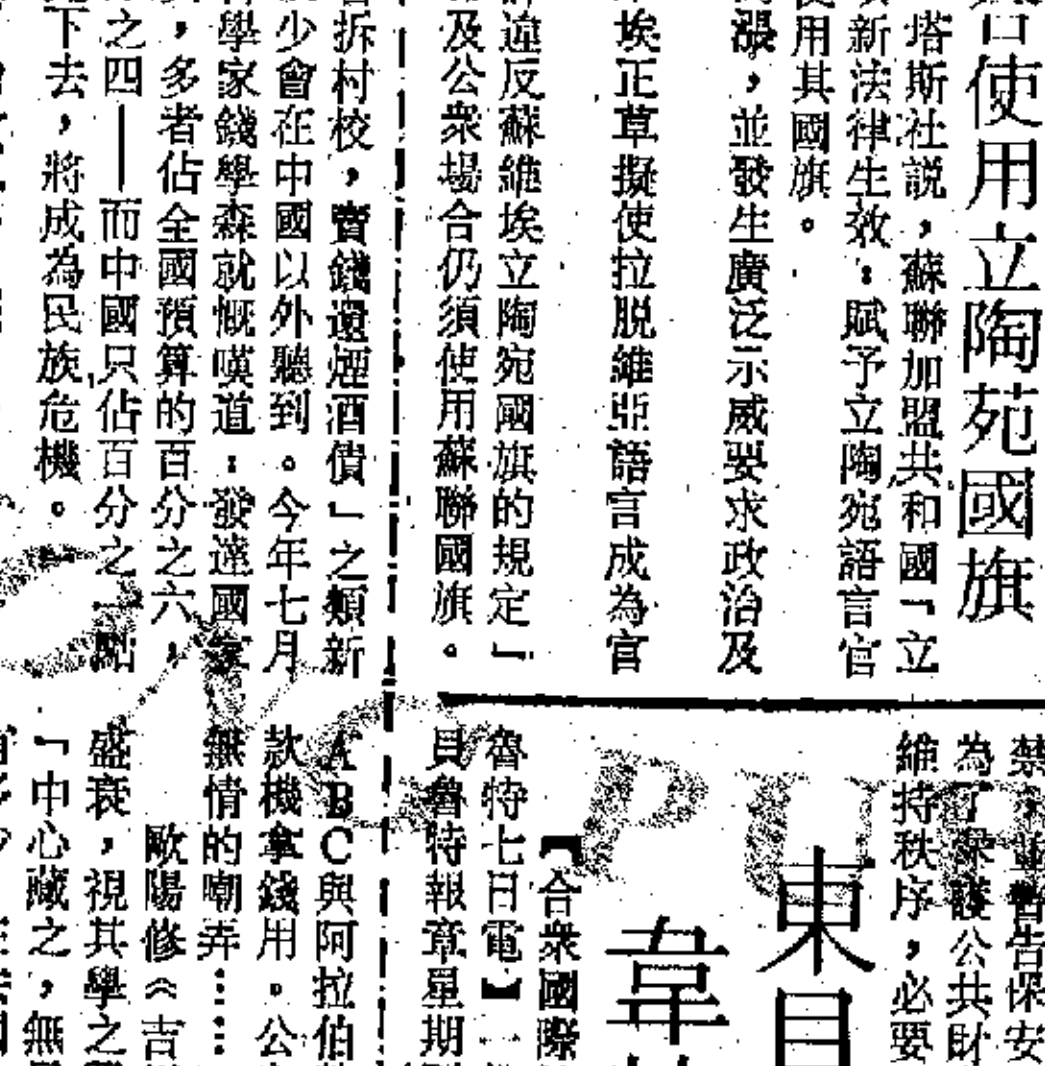 使用立陶苑國旗
塔斯社説，蘇聯加盟共和國「立
新法律生效：賦予立陶宛語言官
使用其國旗。
漲，並發生廣泛示威要求政治及
埃正草擬使拉脱維亞語言成為官
違反蘇維埃立陶宛國旗的規定」
及公衆場合仍須使用蘇聯國旗。
拆村校，賣錢還煙酒債」之類新
少會在中國以外聽到。今年七月
學家錢學森就慨嘆道：發達國家
，多者佔全國預算的百分之六，
之四——而中國只佔百分之一點
下去，將成為民族危機。
禁令並警告保安
為了保護公共財
維持秩序，必要
東
韋
【合衆國際
魯特七日電】
貝魯特報章星期
ABC與阿拉伯
款機拿錢用。公
無情的嘲弄……
歐陽修《吉
盛衰，視其學之
「中心藏之，無